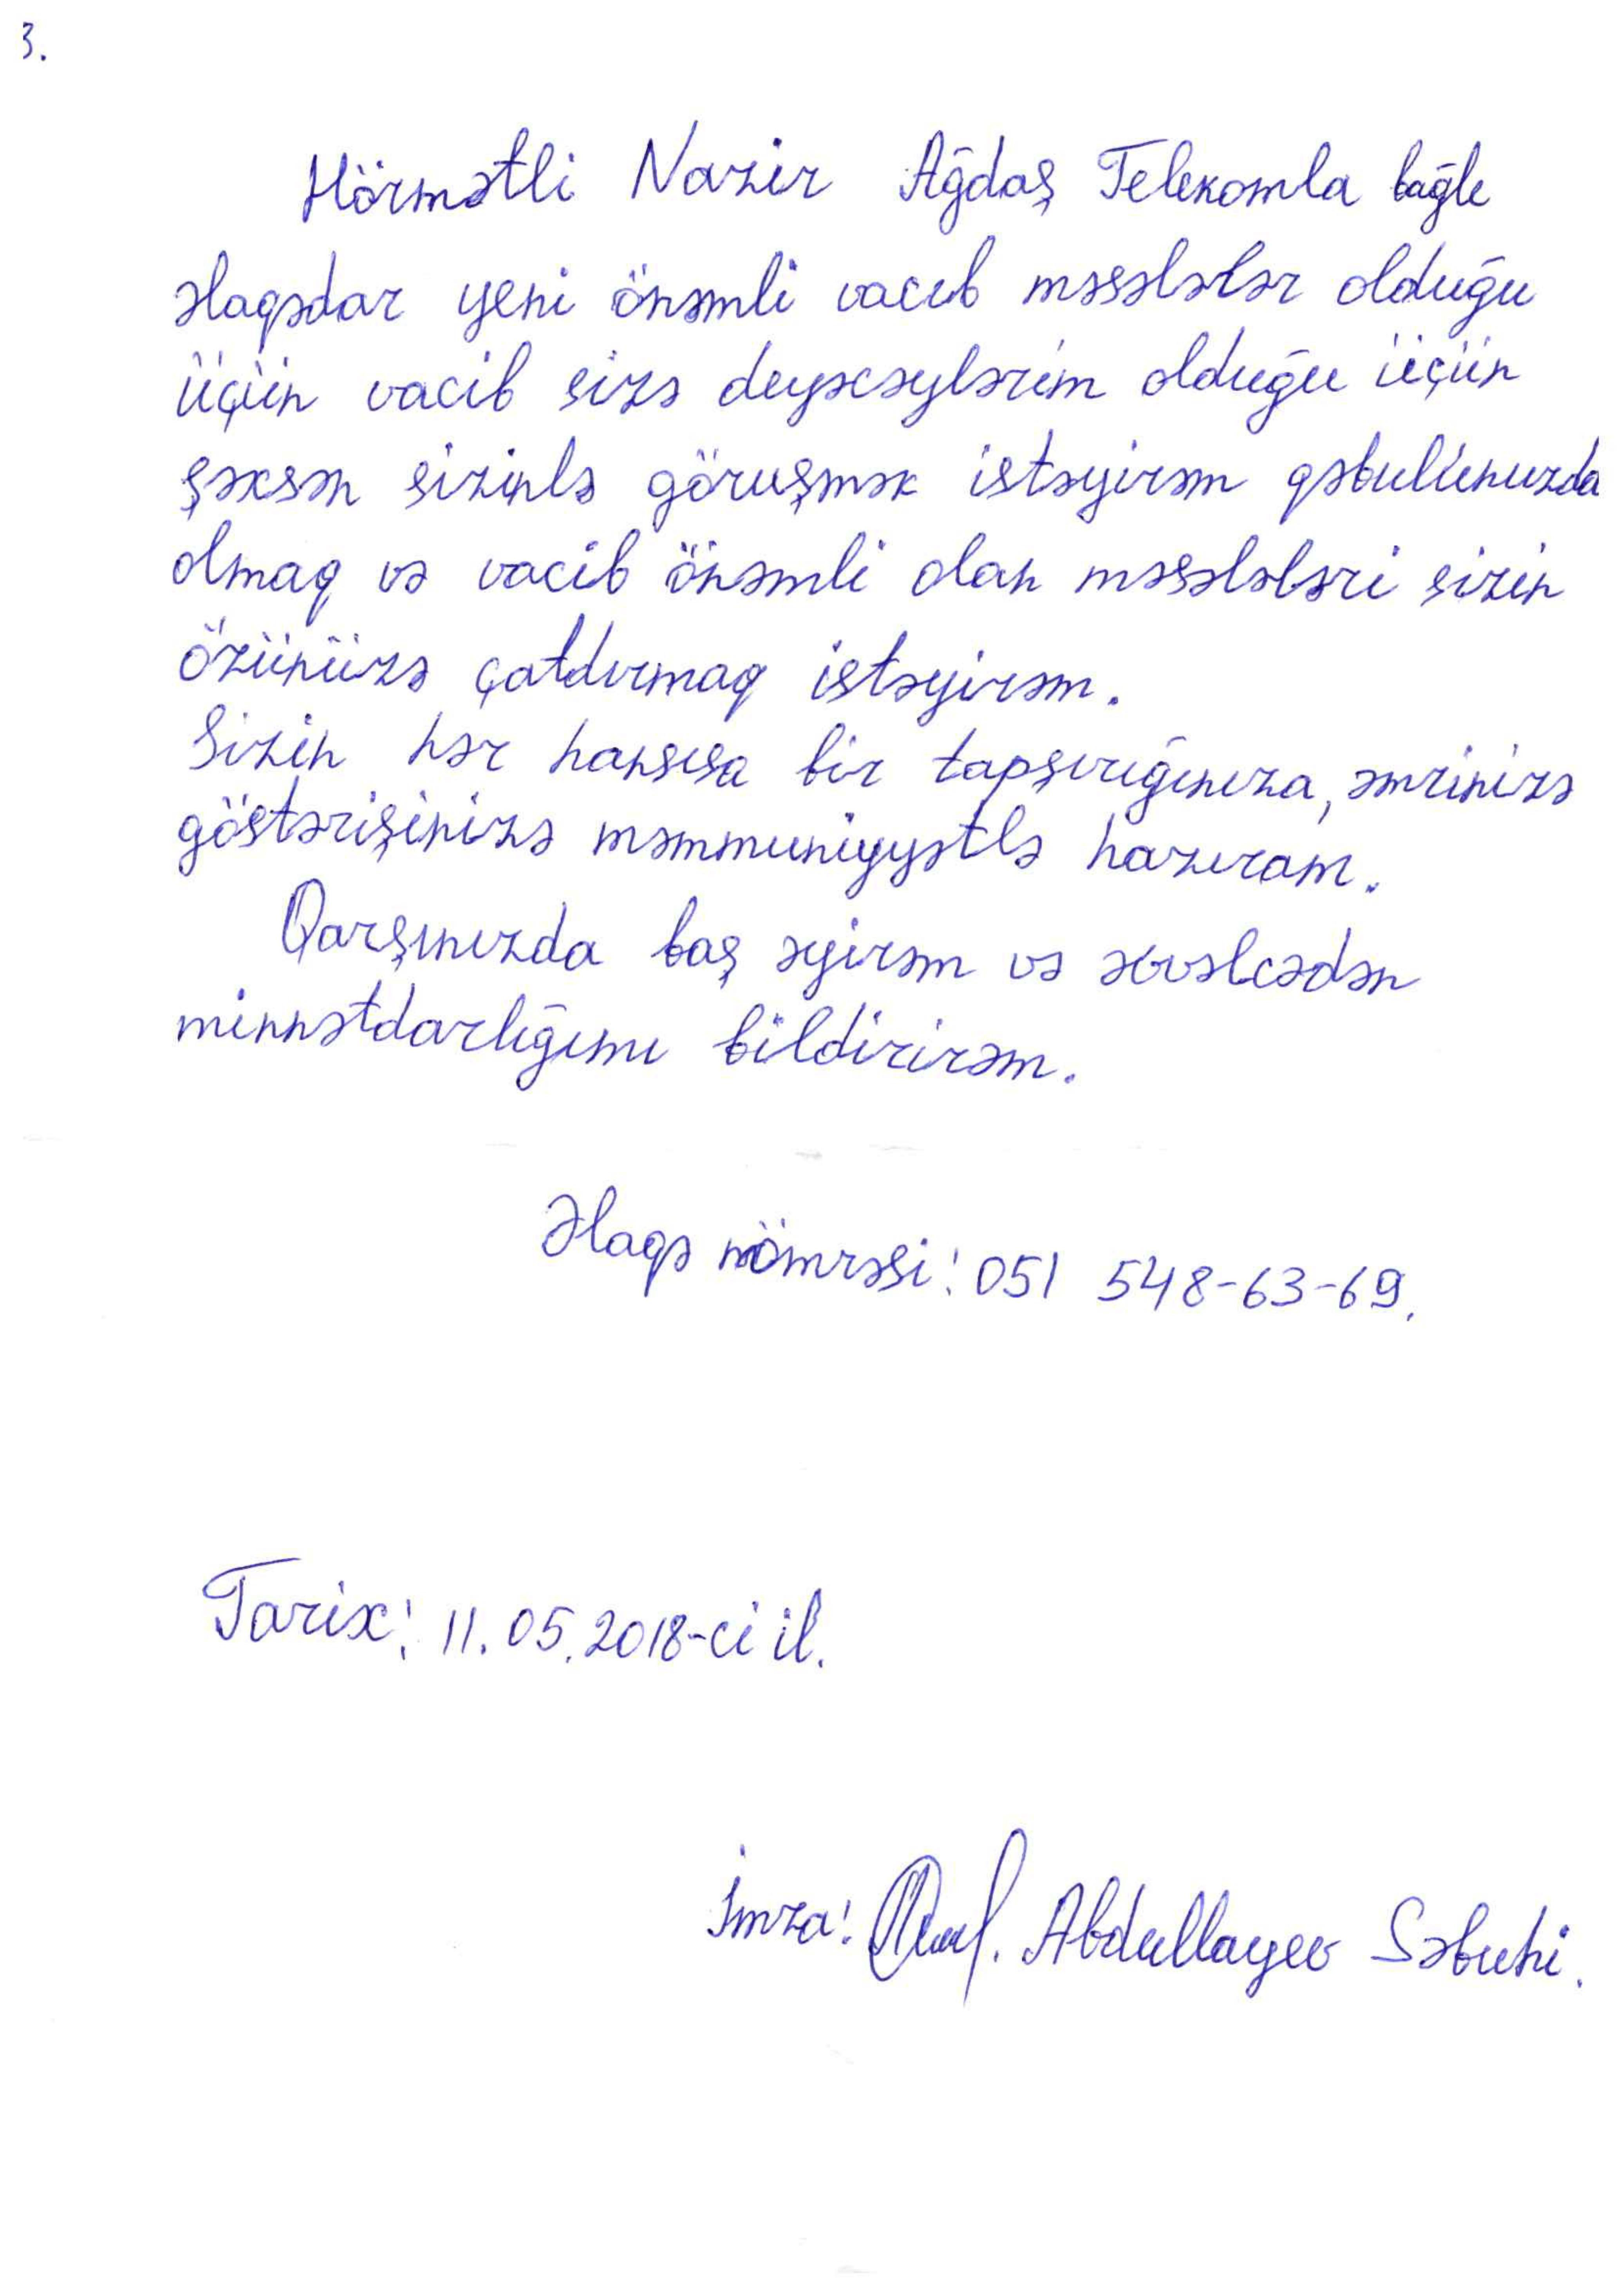 3.
Hörmətli Nazir Ağdaş Telekomla bağlı
əlaqədar yeni önəmli vacib məsələlər olduğu
üçün vacib sizə deyəcəylərim olduğu üçün
şəxsən sizinlə görüşmək istəyirəm qəbulunuzda
olmaq və vacib önəmli olan məsələləri sizin
özünüzə çatdırmaq istəyirəm.
Sizin hər hansısa bir tapşırığınıza, əmrinizə
göstərişinizə məmmuniyyətlə hazıram.
Qarşınızda baş əyirəm və əvvəlcədən
minnətdarlığımı bildirirəm.
Əlaqə nömrəsi: 051 548-63-69.
Tarix: 11.05.2018-ci il.
İmza: Abdullayev Səbuhi.